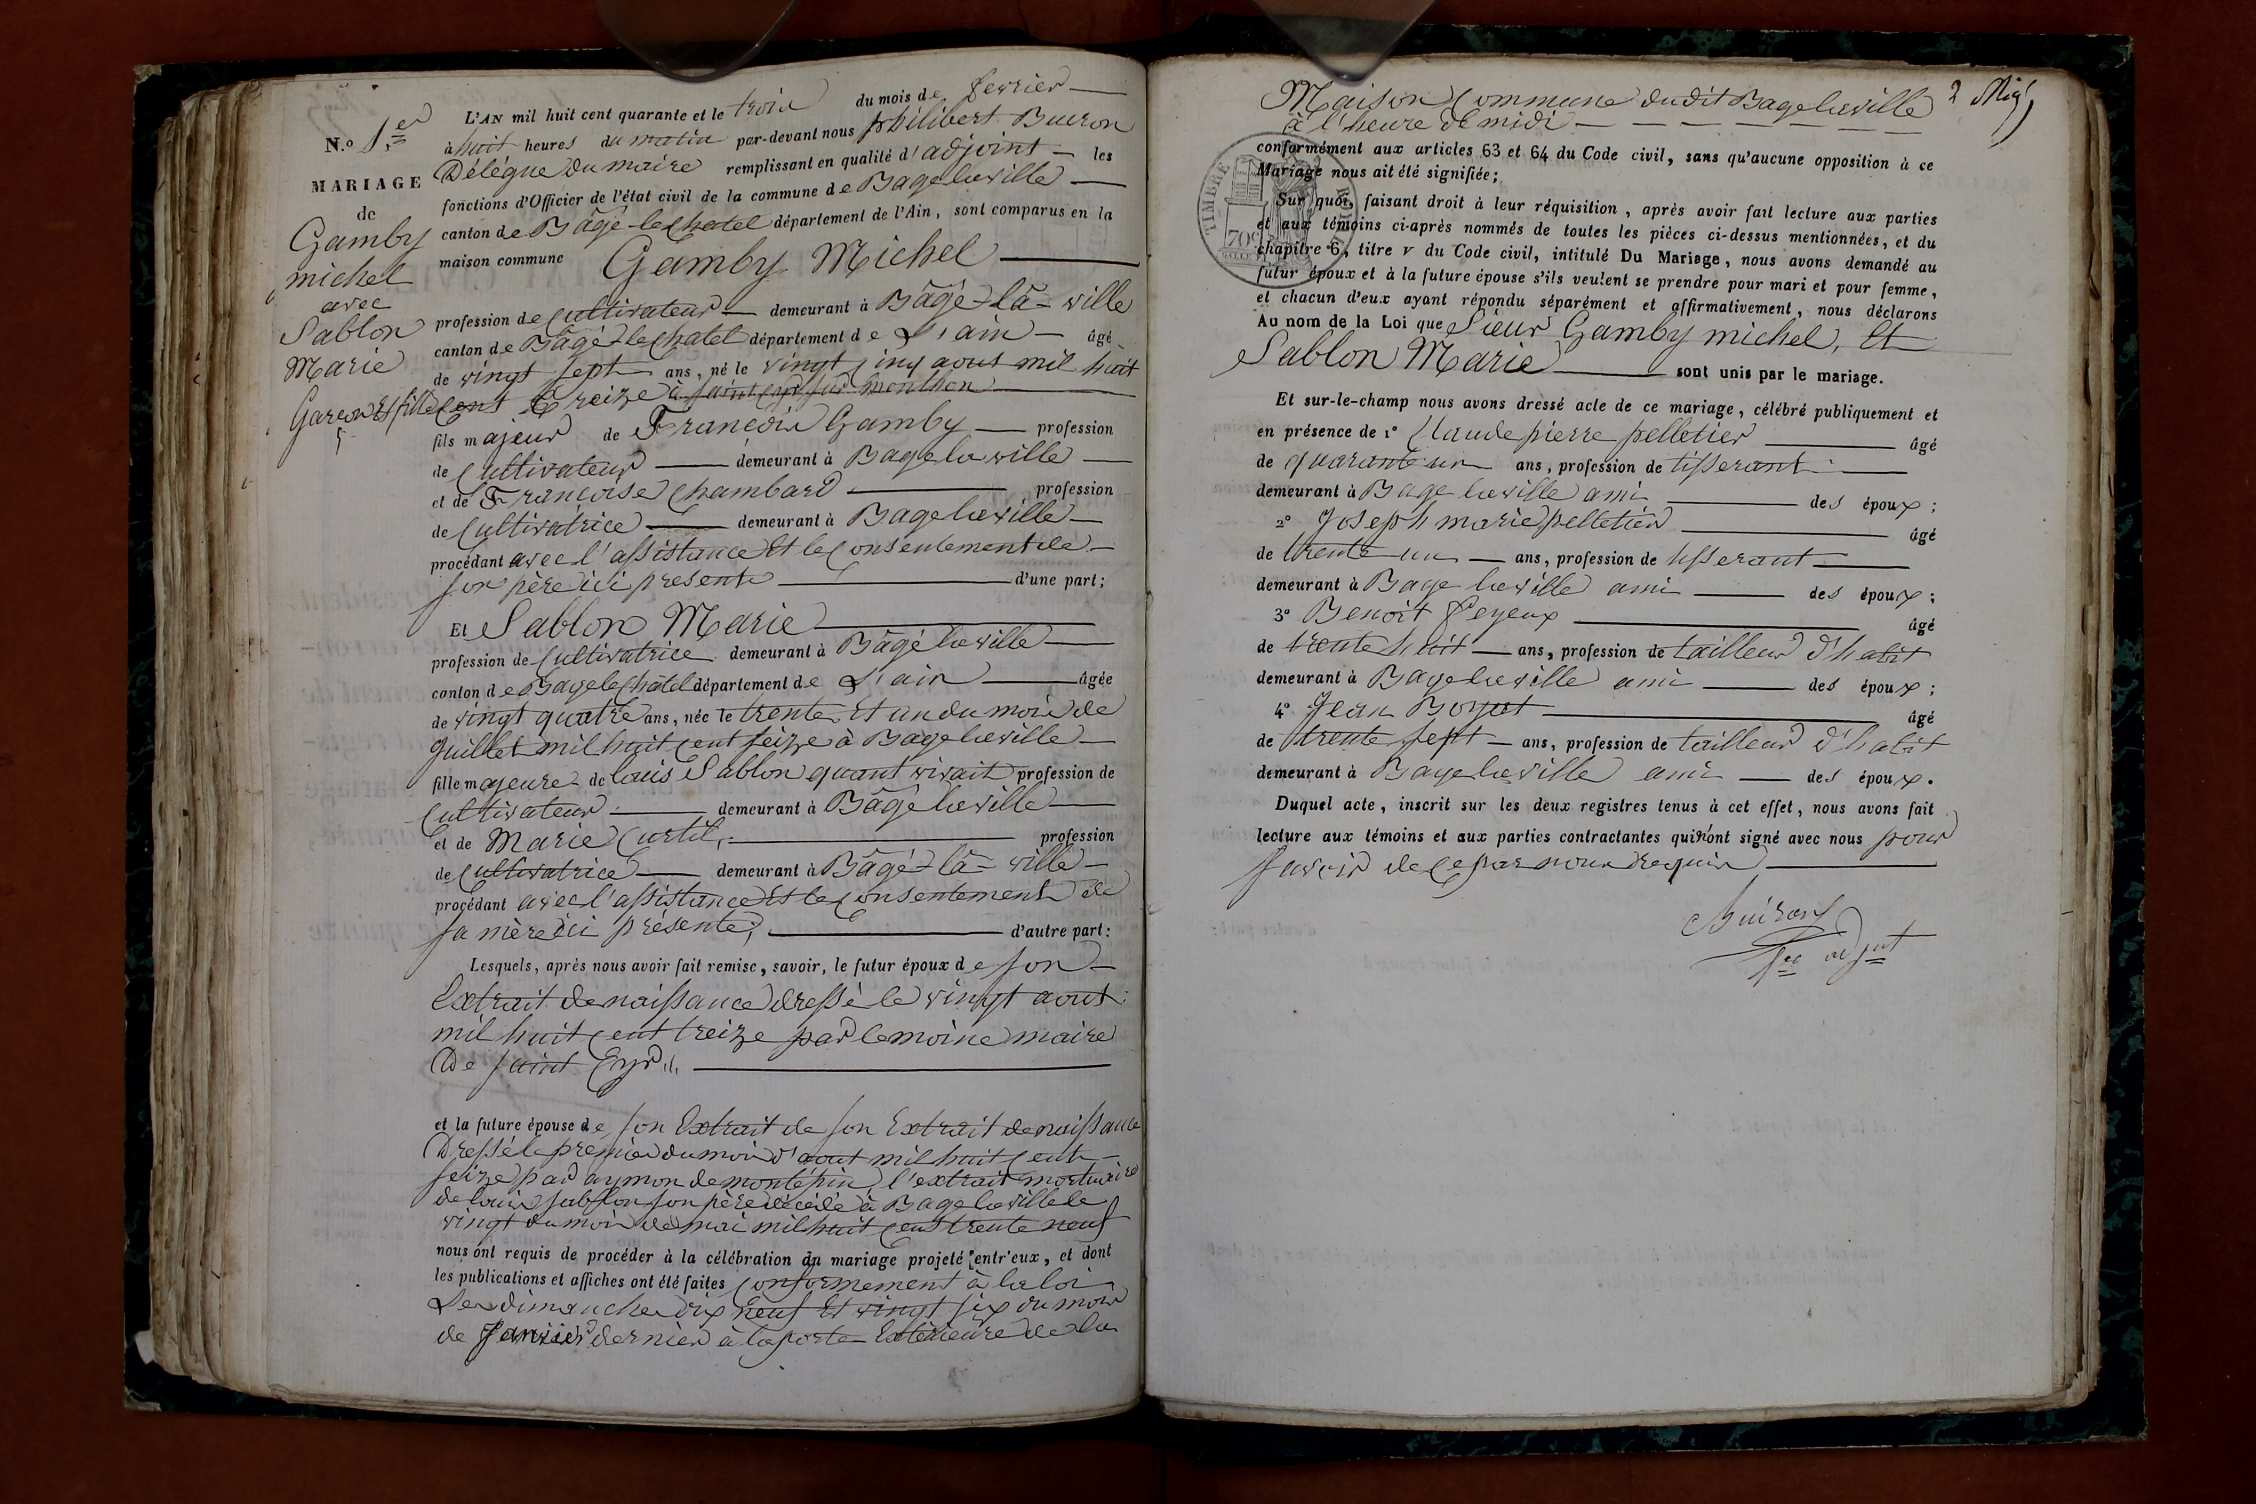 N.o 1.er
MARIAGE
de
Gamby
michel
avec
Sablon
Marie
Garcon Et fille
L'AN mil huit cent quarante et le trois du mois de fevrier
à huit heures du matin par-devant nous philibert Buiron
Délégue Du maire remplissant en qualité d'adjoint les
fonctions d'Officier de l'état civil de la commune de Bage laville
canton de Bâgé-le Chatel département de l'Ain, sont comparus en la
maison commune Gamby Michel
profession de Cultivateur demeurant à Bâgé-lâ-ville
canton de Bâgé-le Chatel département de L'ain âgé
de vingt sept ans, né le vingt cinq aout mil huit
Cent treize à saint Cyr sur menthon
fils majeur de Francois Gamby profession
de Cultivateur demeurant à Bage la ville
et de Francoise Chambard profession
de Cultivatrice demeurant à Bage laville
procédant avec l'assistance Et le Consentement de
son père ici presente d'une part;
Et Sablon Marie
profession de Cultivatrice demeurant à Bâgé laville
canton de Bage le Châtel département de L'ain âgée
de vingt quatre ans, née le trente Et un du mois de
Juillet mil huit Cent seize à Bage laville
fille majeure de louis Sablon quant vivait profession de
Cultivateur demeurant à Bâgé laville
et de Marie Curtil, profession
de Cultivatrice demeurant à Bâgé-lâ-ville
procédant avec l'assistance Et le Consentement de
sa mère ici présente; d'autre part:
Lesquels, après nous avoir fait remise, savoir, le futur époux de son
Extrait de naissance dressé le vingt aout
mil huit Cent treize par lemoine maire
De saint Cyr
et la future épouse de son Extrait de son Extrait de naissance
Dressé le premier du mois d'aout mil huit Cent
seize par aymon de montépin, l'extrait mortuaire
de louis sablon son père décédé à Bage laville le
vingt du mois de mai mil huit Cent trente neuf
nous ont requis de procéder à la célébration du mariage projeté entr'eux, et dont
les publications et affiches ont été faites Conformement à la loi
Les dimanches dix neuf Et vingt six du mois
de Janvier dernier à la porte Extérieure de la
2
Maison Commune du dit Bage laville
à l'heure de midi
TIMBRE
70c
conformément aux articles 63 et 64 du Code civil, sans qu'aucune opposition à ce
Mariage nous ait été signifiée;
Sur quoi, faisant droit à leur réquisition, après avoir fait lecture aux parties
et aux témoins ci-après nommés de toutes les pièces ci-dessus mentionnées, et du
chapitre 6, titre v du Code civil, intitulé Du Mariage, nous avons demandé au
futur époux et à la future épouse s'ils veulent se prendre pour mari et pour femme,
et chacun d'eux ayant répondu séparément et affirmativement, nous déclarons
Au nom de la Loi que Sieur Gamby michel, Et
Sablon Marie sont unis par le mariage.
Et sur-le-champ nous avons dressé acte de ce mariage, célébré publiquement et
en présence de 1° Claude pierre pelletier âgé
de quarante un ans, profession de tisserant
demeurant à Bage laville ami des époux;
2° Joseph marie pelletier âgé
de trente un ans, profession de tisserant
demeurant à Bage laville ami des époux;
3° Benoit feyeux âgé
de trente huit ans, profession de tailleur d'habit
demeurant à Bage laville ami des époux;
4° Jean Boyat âgé
de trente sept ans, profession de tailleur d'habit
demeurant à Bage laville ami des époux.
Duquel acte, inscrit sur les deux registres tenus à cet effet, nous avons fait
lecture aux témoins et aux parties contractantes qui n'ont signé avec nous pour
savoir de Ce par nous requis
Buiron
adjut